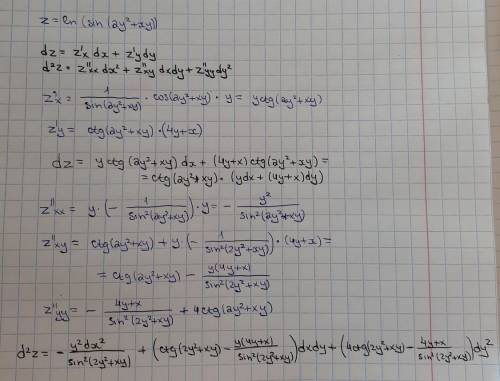 z = ln (sin (2y²+xy)
dz = z'x dx + z'y dy
d²z = z''xx dx² + z''xy dxdy + z''yy dy²
z'x = 1/sin(2y²+xy) · cos(2y²+xy) · y = y ctg(2y²+xy)
z'y = ctg(2y²+xy) · (4y+x)
dz = y ctg(2y²+xy) dx + (4y+x) ctg(2y²+xy) =
= ctg(2y²+xy) · (ydx + (4y+x)dy)
z''xx = y · (- 1/sin²(2y²+xy)) · y = - y²/sin²(2y²+xy)
z''xy = ctg(2y²+xy) + y · (- 1/sin²(2y²+xy)) · (4y+x) =
= ctg(2y²+xy) - y(4y+x)/sin²(2y²+xy)
z''yy = - 4y+x/sin²(2y²+xy) + 4ctg(2y²+xy)
d²z = - y²dx²/sin²(2y²+xy) + (ctg(2y²+xy) - y(4y+x)/sin²(2y²+xy)) dxdy + (4ctg(2y²+xy) - 4y+x/sin²(2y²+xy)) dy²